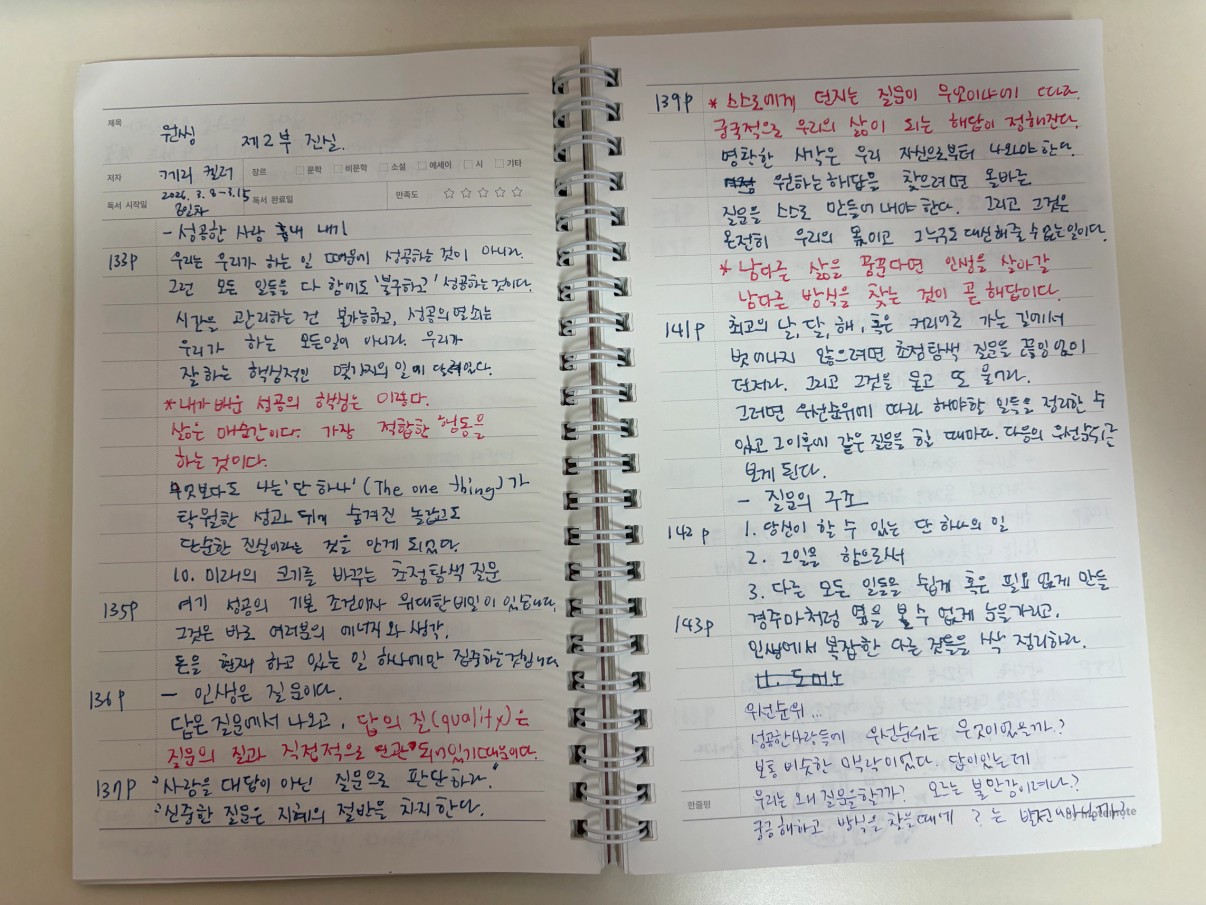 제목
원씽 제2부 진실.
저자 게리 켈러 장르 문학 비문학 소설 에세이 시 기타
독서 시작일 2026. 3. 8 ~ 3. 15 독서 완료일 만족도 ☆☆☆☆☆
8일차
- 성공한 사람 흉내 내기
133p 우리는 우리가 하는 일 때문에 성공하는 것이 아니라.
그런 모든 일들을 다 함에도 '불구하고' 성공하는 것이다.
시간을 관리하는 건 불가능하고, 성공의 열쇠는
우리가 하는 모든일이 아니라. 우리가
잘 하는 핵심적인 몇가지의 일에 달려있다.
*내가 배운 성공의 핵심은 이렇다.
삶은 매순간이다. 가장 적합한 행동을
하는 것이다.
무엇보다도 나는 '단 하나' (The one thing) 가
탁월한 성과 뒤에 숨겨진 놀랍고도
단순한 진실이라는 것을 안게 되었다.
10. 미래의 크기를 바꾸는 초점탐색 질문
135p 여기 성공의 기본 조건이자 위대한 비밀이 있습니다.
그것은 바로 여러분의 에너지와 생각,
돈을 현재 하고 있는 일 하나에만 집중하는것입니다
136p — 인생은 질문이다.
답은 질문에서 나오고, 답의 질(quality)은
질문의 질과 직접적으로 연관 되어있기때문이다.
137p "사람을 대답이 아닌 질문으로 판단하라."
"신중한 질문은 지혜의 절반을 차지한다.
139p * 스스로에게 던지는 질문이 무엇이냐에 따라
궁극적으로 우리의 삶이 되는 해답이 정해진다.
명확한 시각은 우리 자신으로부터 나와야 한다.
원하는 해답을 찾으려면 올바른
질문을 스스로 만들어 내야 한다. 그리고 그것은
온전히 우리의 몫이고 그누구도 대신해줄 수 없는일이다.
* 남다른 삶을 꿈꾼다면 인생을 살아갈
남다른 방식을 찾는 것이 곧 해답이다.
141p 최고의 날, 달, 해, 혹은 커리어로 가는 길에서
벗어나지 않으려면 초점탐색 질문을 끊임없이
던져라. 그리고 그것을 묻고 또 물어라.
그러면 우선순위에 따라 해야할 일들을 정리할 수
있고 그 이후에 같은 질문을 할 때마다. 다음의 우선순위를
보게 된다.
— 질문의 구조
142p 1. 당신이 할 수 있는 단 하나의 일
2. 그일을 함으로써
3. 다른 모든 일들을 쉽게 혹은 필요 없게 만들
143p 경주마처럼 옆을 볼수 없게 눈을가리고,
인생에서 복잡한 다른 것들을 싹 정리하라.
11. 도미노
우선순위...
성공한사람들에 우선순위는 무엇이었을까?
보통 비슷한 맥락이었다. 답이있는데
우리는 왜 질문을할까? 모르는 불안감이려나?
한줄평 궁금해하고 방식을 찾을때에 ? 는